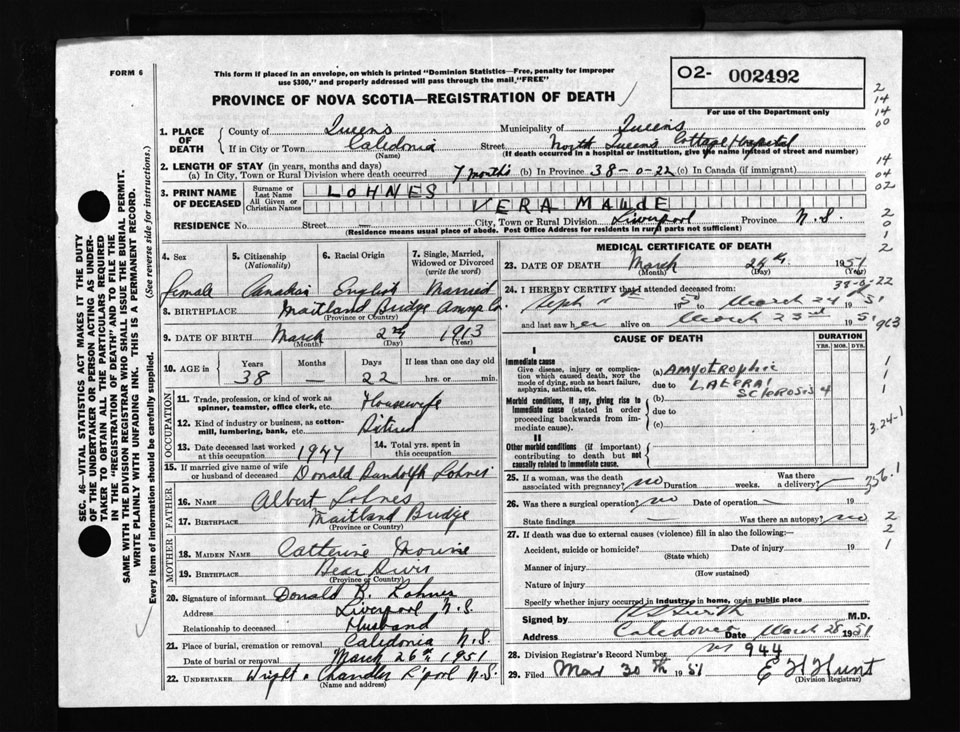 FORM 6
This form if placed in an envelope, on which is printed "Dominion Statistics—Free, penalty for improper
use $300," and properly addressed will pass through the mail "FREE"
PROVINCE OF NOVA SCOTIA—REGISTRATION OF DEATH
O2- 002492
For use of the Department only
1. PLACE OF DEATH { County of Queens Municipality of Queens
If in City or Town Caledonia (Name) Street North Queens Cottage Hospital
(If death occurred in a hospital or institution, give the name instead of street and number)
2. LENGTH OF STAY (in years, months and days)
(a) In City, Town or Rural Division where death occurred 7 months (b) In Province 38-0-22 (c) In Canada (if immigrant)
3. PRINT NAME OF DECEASED { Surname or Last Name LOHNES
All Given or Christian Names VERA MAUDE
RESIDENCE No. Street — City, Town or Rural Division Liverpool Province N.S.
(Residence means usual place of abode. Post Office Address for residents in rural parts not sufficient)
4. Sex
female
5. Citizenship (Nationality)
Canadian
6. Racial Origin
English
7. Single, Married, Widowed or Divorced (write the word)
Married
8. BIRTHPLACE Maitland Bridge Annap Co.
(Province or Country)
9. DATE OF BIRTH March 2nd 1913
(Month) (Day) (Year)
10. AGE in { Years 38 Months — Days 22 If less than one day old
hrs. or min.
OCCUPATION
11. Trade, profession, or kind of work as spinner, teamster, office clerk, etc. Housewife
12. Kind of industry or business, as cotton-mill, lumbering, bank, etc. Retired
13. Date deceased last worked at this occupation 1947
14. Total yrs. spent in this occupation
15. If married give name of wife or husband of deceased Donald Randolph Lohnes
FATHER
16. NAME Albert Lohnes
17. BIRTHPLACE Maitland Bridge
(Province or Country)
MOTHER
18. MAIDEN NAME Catherine
19. BIRTHPLACE Bear River
(Province or Country)
20. Signature of informant Donald R. Lohnes
Address Liverpool N.S.
Relationship to deceased Husband
21. Place of burial, cremation or removal Caledonia N.S.
Date of burial or removal March 26th 1951
22. UNDERTAKER Wright & Chandler L'pool N.S.
(Name and address)
MEDICAL CERTIFICATE OF DEATH
23. DATE OF DEATH March 24th 1951
(Month) (Day) (Year)
38-0-22
24. I HEREBY CERTIFY that I attended deceased from:
Sept 11th 1950 to March 24 1951
and last saw her alive on March 23rd 1951
963
CAUSE OF DEATH
DURATION
YRS. MOS. DYS.
I
Immediate cause
Give disease, injury or complication which caused death, NOT the mode of dying, such as heart failure, asphyxia, asthenia, etc.
(a) Amyotrophic
due to Lateral
(b) Sclerosis 4
Morbid conditions, if any, giving rise to immediate cause (stated in order proceeding backwards from immediate cause).
due to
(c)
II
Other morbid conditions (if important) contributing to death but not causally related to immediate cause.
3.24-1
25. If a woman, was the death associated with pregnancy? no Duration weeks. Was there a delivery? —
356.1
26. Was there a surgical operation? no Date of operation — 19
State findings — Was there an autopsy? no
27. If death was due to external causes (violence) fill in also the following:—
Accident, suicide or homicide? Date of injury 19
(State which)
Manner of injury
(How sustained)
Nature of injury
Specify whether injury occurred in industry, in home, or in public place
Signed by M.D.
Address Caledonia Date March 28 1951
28. Division Registrar's Record Number 944
29. Filed Mar 30th 1951 E H Hunt
(Division Registrar)
SEC. 46—VITAL STATISTICS ACT MAKES IT THE DUTY
OF THE UNDERTAKER OR PERSON ACTING AS UNDER-
TAKER TO OBTAIN ALL THE PARTICULARS REQUIRED
IN THE "REGISTRATION OF DEATH" AND TO FILE THE
SAME WITH THE DIVISION REGISTRAR WHO SHALL ISSUE THE BURIAL PERMIT.
WRITE PLAINLY WITH UNFADING INK. THIS IS A PERMANENT RECORD.
Every item of information should be carefully supplied. (See reverse side for instructions.)
2
14
14
00
14
04
02
2
0
1
2
1
1
1
2
2
1